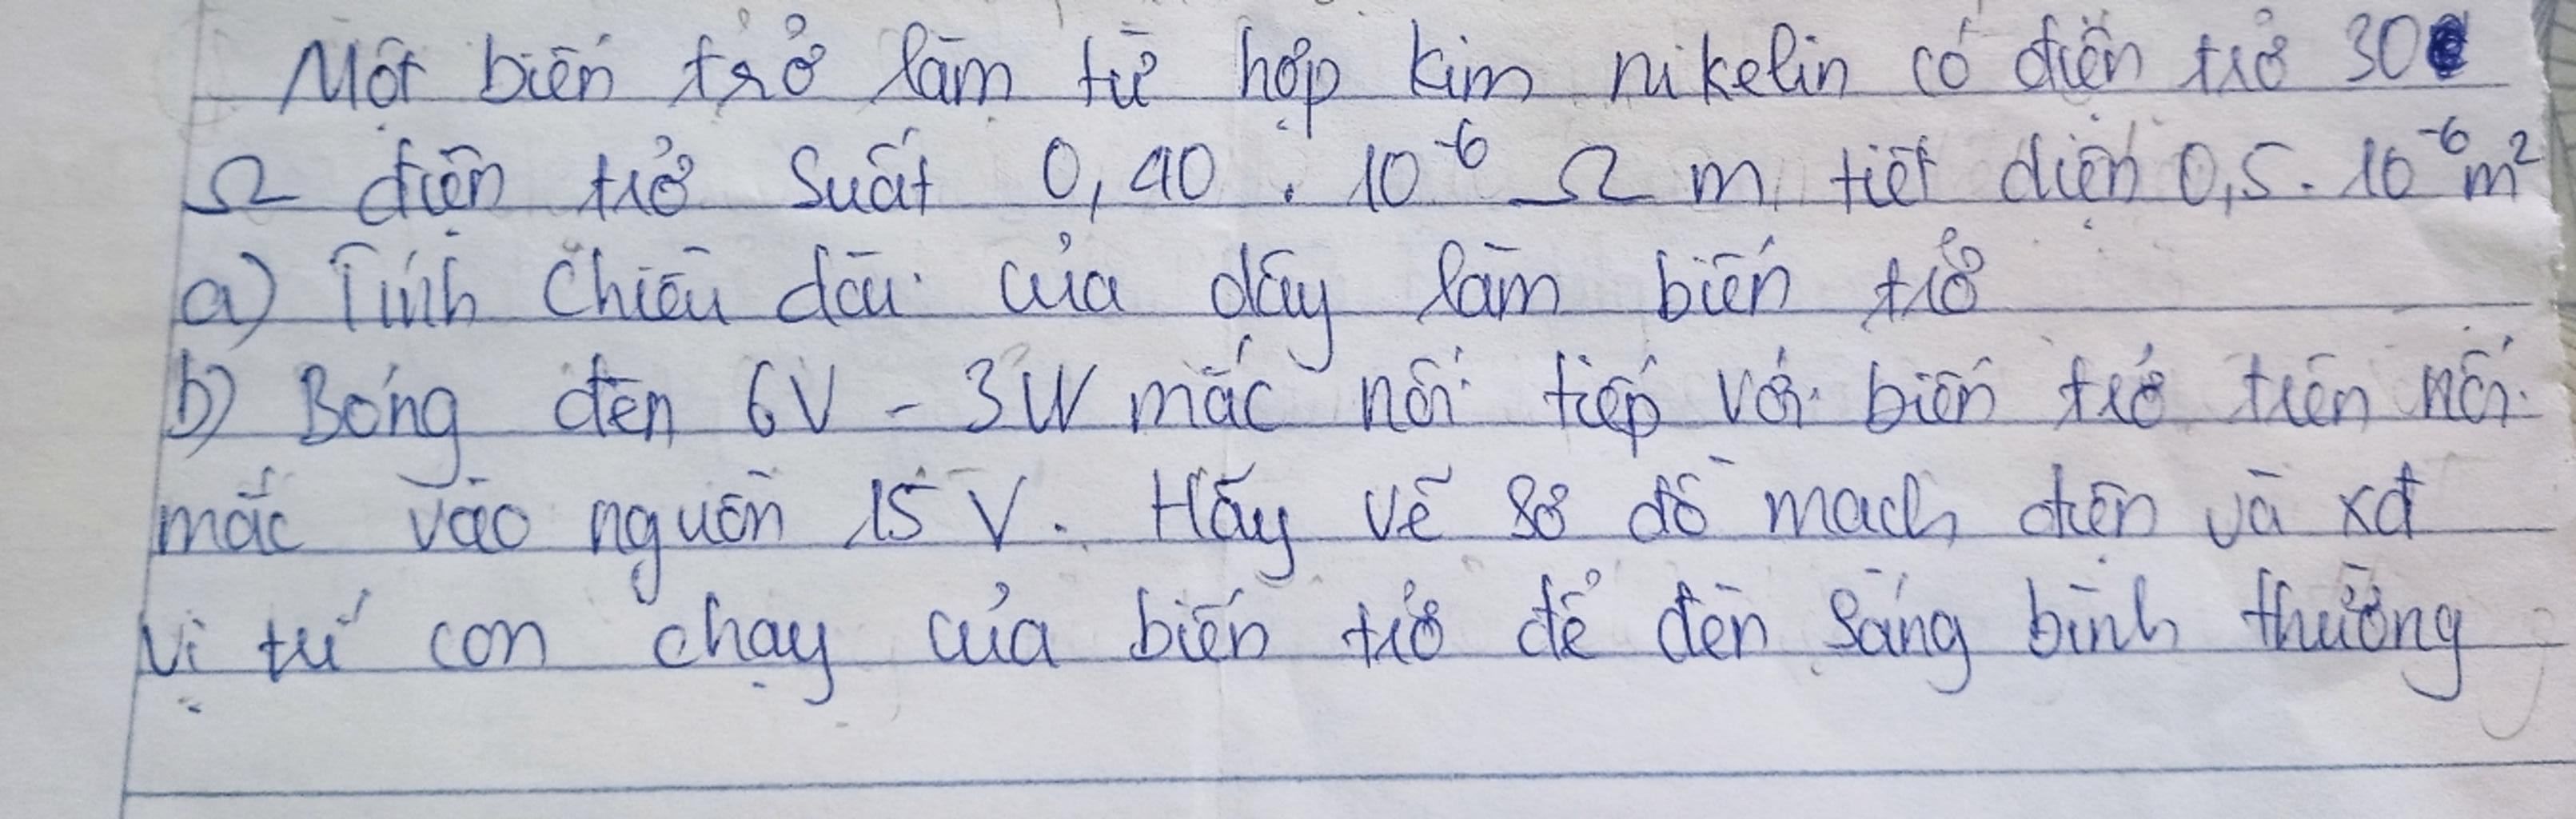 Một biến trở làm từ hợp kim nikelin có điện trở 30
Ω điện trở suất 0,40 . 10⁻⁶ Ω m, tiết diện 0,5. 10⁻⁶m²
a) Tính chiều dài của dây làm biến trở
b) Bóng đèn 6V - 3W mắc nối tiếp với biến trở trên nối
mắc vào nguồn 15 V. Hãy vẽ sơ đồ mạch điện và xđ
vị trí con chạy của biến trở để đèn sáng bình thường